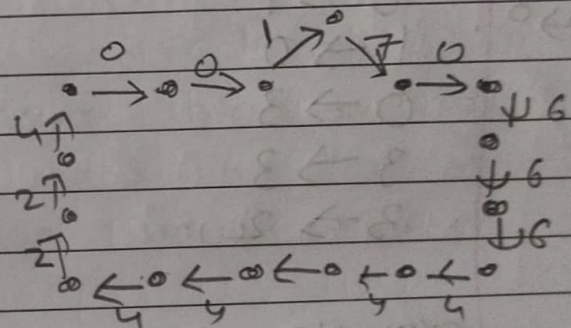 0 0 1 7 0
4 6
2 6
2 6
4 4 4 4